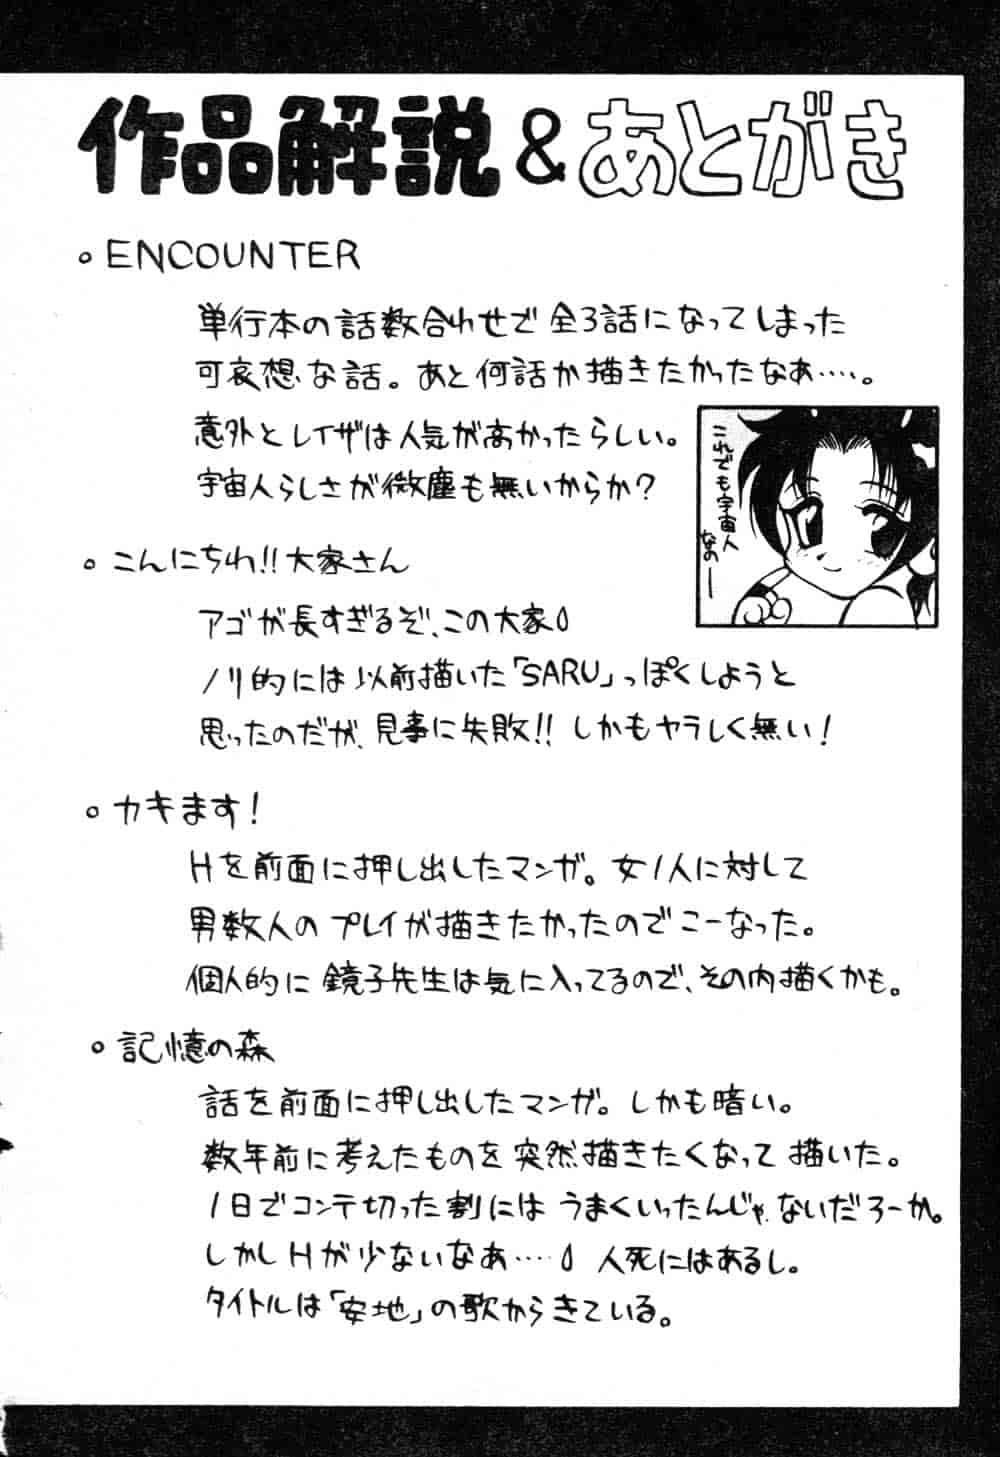 作品解説&あとがき
。ENCOUNTER
単行本の話数合わせで全3話になってしまった
可哀想な話。あと何話か描きたかったなあ……。
意外とレイザは人気が高かったらしい。
宇宙人らしさが微塵も無いからか?
これでも宇宙人
なのー
。こんにちわ!!大家さん
アゴが長すぎるぞ、この大家
ノリ的には以前描いた「SARU」っぽくしようと
思ったのだが、見事に失敗!!しかもヤラしく無い!
。カキます!
Hを前面に押し出したマンガ。女1人に対して
男数人のプレイが描きたかったのでこーなった。
個人的に鏡子先生は気に入ってるので、その内描くかも。
。記憶の森
話を前面に押し出したマンガ。しかも暗い。
数年前に考えたものを突然描きたくなって描いた。
1日でコンテ切った割にはうまくいったんじゃないだろーか。
しかしHが少ないなあ…… 人死にはあるし。
タイトルは「安地」の歌からきている。